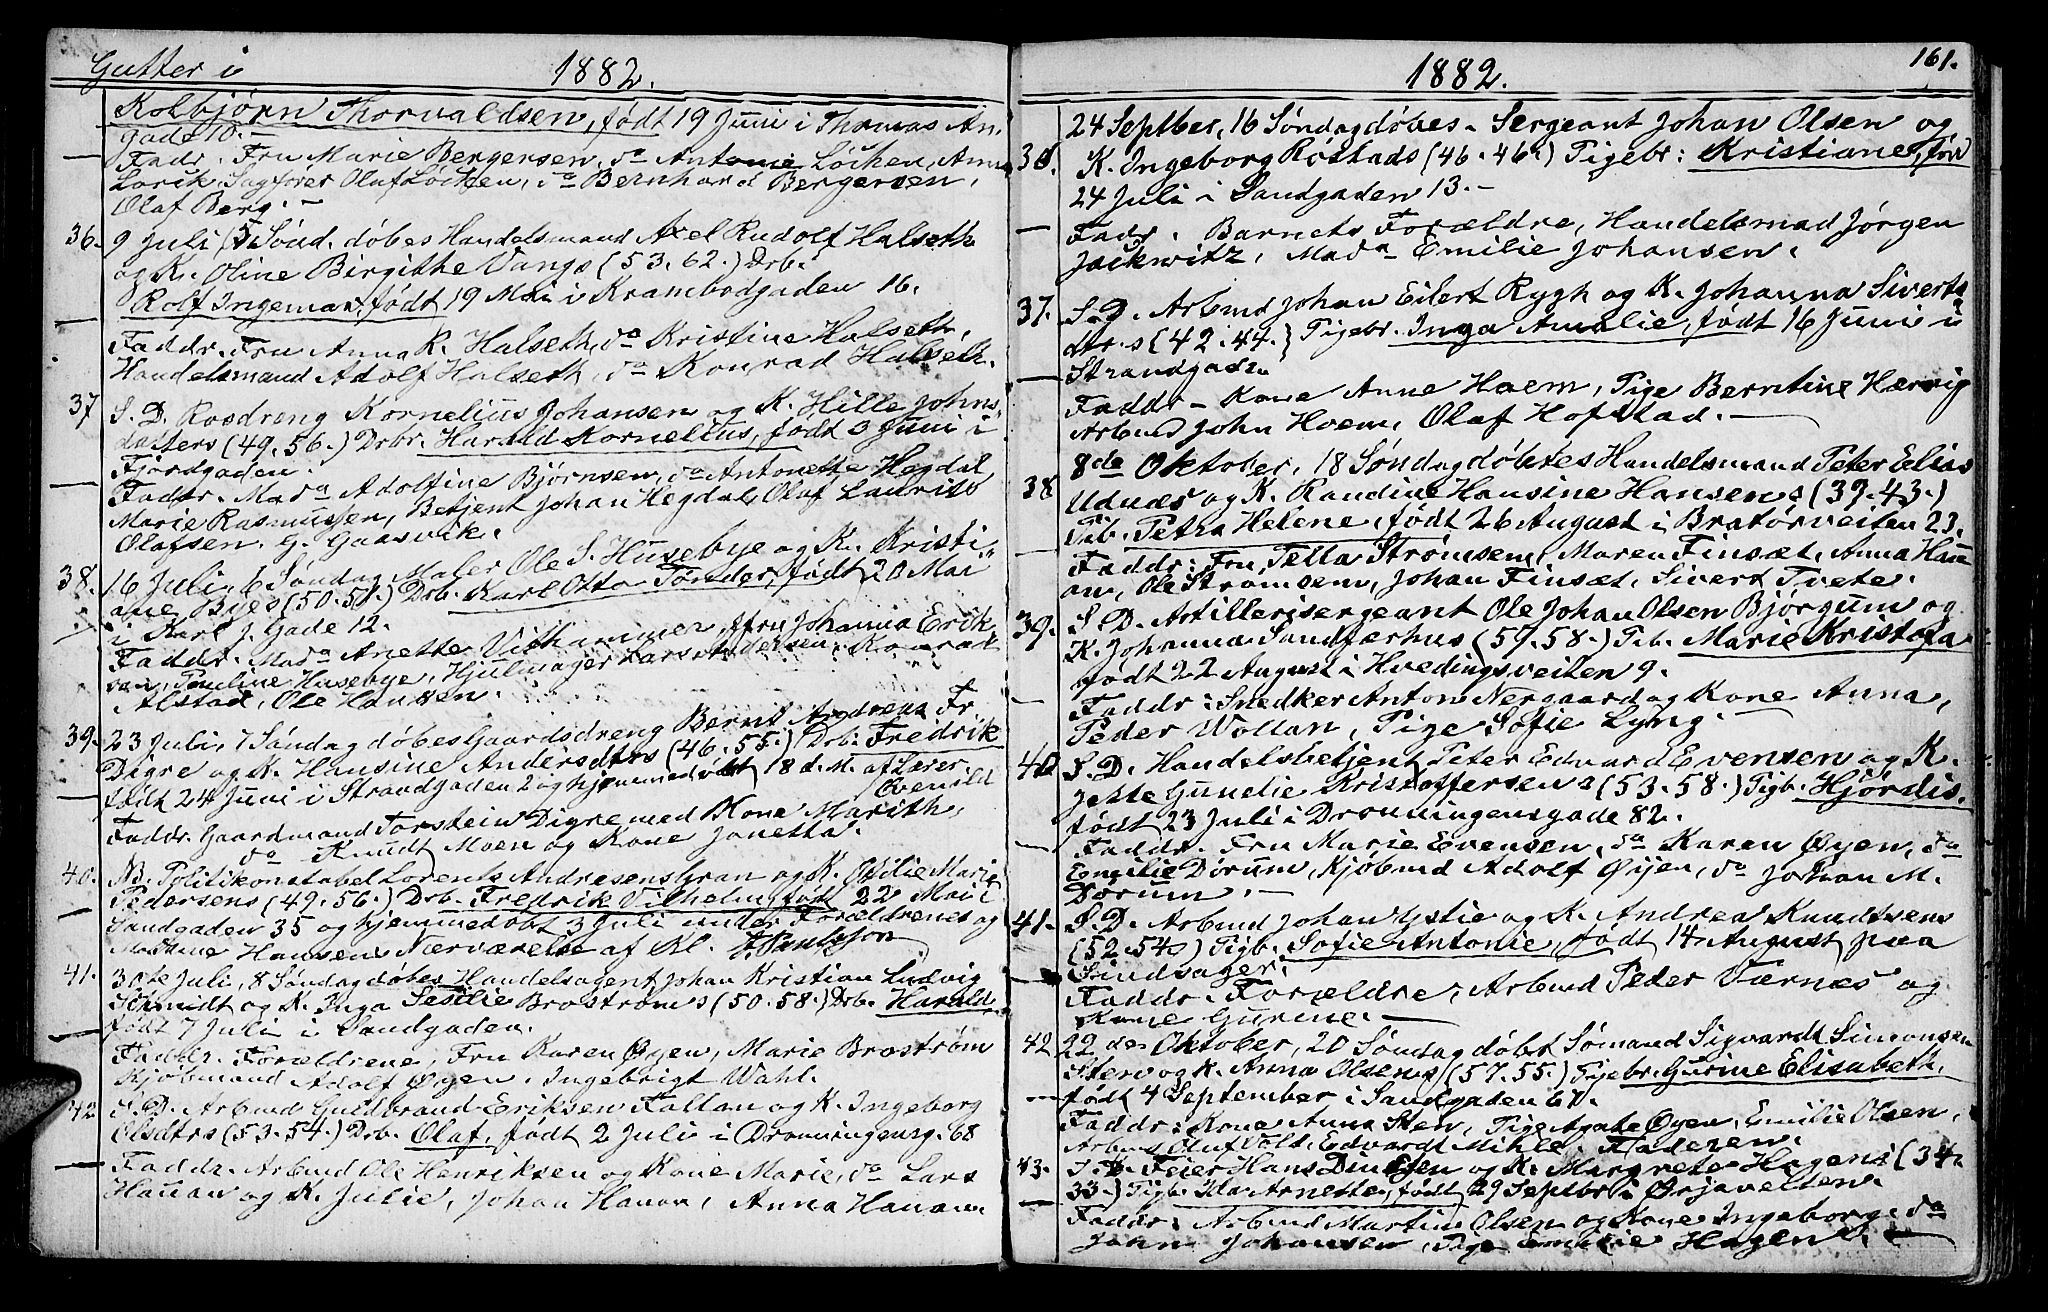 Gutter i 1882.
Kolbjørn Thorvaldsen, født 19 Juni i Thomas An.
gade 10.-
Fadr. Fru Marie Bergersen, do Antonie Løchen, Anna
Lorck, Sagfører Olaf Løchen, do Bernhard Bergersen,
Olaf Berg.-
36. 9 Juli (5 Sønd. døbes Handelsmand Axel Rudolf Halseth
og K. Oline Birgithe Vangs (53.62.) Drb.
Rolf Ingeman, født 19 Mai i Krambodgaden 16.
Faddr. Fru Anna K. Halseth, do Kristine Halseth,
Handelsmand Adolf Halseth, do Konrad Halseth.
37 S. D. Rosdreng Kornelius Johansen og K. Hille Johns-
datters (49.56.) Drbr. Harald Kornelius, født 3 Juni i
Fjordgaden.
Faddr. Mada Adolfine Bjørnsen, do Antonette Hegdal,
Marie Rasmussen, Betjent Johan Hegdal, Olaf Lauritz
Olafsen. G. Gaasvik.
38. 16 Juli, 6 Søndag, Maler Ole S. Husebye og K. Kristi-
ane Byes (50.51.) Drb. Karl Otto Tønder, født 20 Mai
i Karl J. Gade 12.
Faddr. Mada Anette Vithammer, Fru Johanna Erik
sen, Pauline Husebye, Hjulmager Lars Andersen, Konrad
Alstad, Ole Hansen.
39. 23 Juli, 7 Søndag døbes Gaardsdreng Bernt Andreas Fr.
Digre og K. Hansine Andersdtrs (46.55.) Drb. Fredrik
født 24 Juni i Strandgaden 2 og hjemmedøbt 18 d. M. af Lærer
Overild
Faddr. Gaardmand Torstein Digre med Kone Marith,
do Knudt Moen og Kone Janetta.
40. N. Politikonstabel Lorents Andresens Gran og K. Ofilie Marie
Pedersens (49.56.) Drb. Fredrik Vilhelm, født 22 Mai i
Sandgaden 35 og hjemmedøbt 3 Juli under Forældrenes og
Madame Hansens Nærværelse af Kl.
41. 30te Juli, 8 Søndag døbes Handelsagent Johan Kristian Ludvig
Schmidt og K. Inga Sesilie Brostrøms (50.58.) Drb. Harald
født 7 Juli i Sandgaden.
Faddr. Forældrene, Fru Karen Øyen, Marie Brostrøm
Kjøbmand Adolf Øyen, Ingebrigt Wahl.
42 S. D. Arbmd Guldbrand Eriksen Fallan og K. Ingeborg
Olsdtrs (53.54.) Drb. Olaf, født 2 Juli i Dronningensg. 68
Faddr. Arbmd Ole Henriksen og Kone Marie, do Lars
Hanan og K. Julie, Johan Hanan, Anna Hanan.
1882. 161.
24 Septber, 16 Søndag døbes - Sergeant Johan Olsen og
36. K. Ingeborg Røstads (46.46.) Pigebr: Kristiane, fød
24 Juli i Sandgaden 13.-
Fadr. Barnets Forældre, Handelsmad Jørgen
Jackwitz, Mada Emilie Johansen.
37. S. D. Arbmd Johan Eilert Rygh og K. Johanna Siverts
dtr.s (42.44.) Pigebr. Inga Amalie, født 16 Juni i
Strandgaden
Faddr - Kone Anne Hoem, Pige Berntine Hærvig
Arbmd John Hoem, Olaf Hofstad.-
8de Oktober, 18 Søndag døbtes Handelsmand Peter Elias
38 Udnæs og K. Randine Hansine Hansens (39.43.)
Pib. Petra Helene, født 26 August i Bratørveiten 23.
Faddr: Fru Pella Strømsem, Maren Finsæt, Anna Hau
an, Ole Strømsem, Johan Finsæt, Sivert Tvete.
39. S. D. Artillerisergeant Ole Johan Olsen Bjørgum og
K. Johanna Sandfærhus (59.58.) Pib. Marie Kristofa
født 22 August i Hvedingsveiten 9.
Faddr: Snedker Anton Nergaard og Kone Anna,
Peder Wollan, Pige Sofie Lyng.
40 S. D. Handelsbetjent Peter Edvard Evensen og K.
Jette Gunelie Kristoffersens (53.58.) Pigb. Hjørdis,
født 23 Juli i Dronningensgade 82.
Faddr. Fru Marie Evensen, do Karen Øyen, do
Emilie Dørum, Kjøbmd Adolf Øyen, do Johan M.
Dørum.-
41. S. D. Arbmd Johan Ystie og K. Andrea Knudtsens
(52.54.) Pigb. Sofie Antonie, født 14 August paa
Rindsager.
Faddr. Forældre, Arbmd Peder Værnes og
Kone Gurine.-
42 22 des Oktober, 20 Søndag døbt Sømand Sigvardt Simonsen
Sten og K. Anna Olsens (57.55.) Pigebr. Gurine Elisabeth,
født 4 September i Sandgaden 61.
Faddr: Kone Anna Sten, Pige Agate Øyen, Emilie Olsen,
Arbmd Oluf Volt, Edvardt Mihle, Faderen.
43. S. D. Feier Hans Dinesen og K. Margrete Hagens (34.
33.) Pigb. Ida Arnette, født 29 Septbr i Ørjaveiten.
Faddr: Arbmd Martin Olsen og Kone Ingeborg, do
John Johansen, Pige Emilie Hagen.-